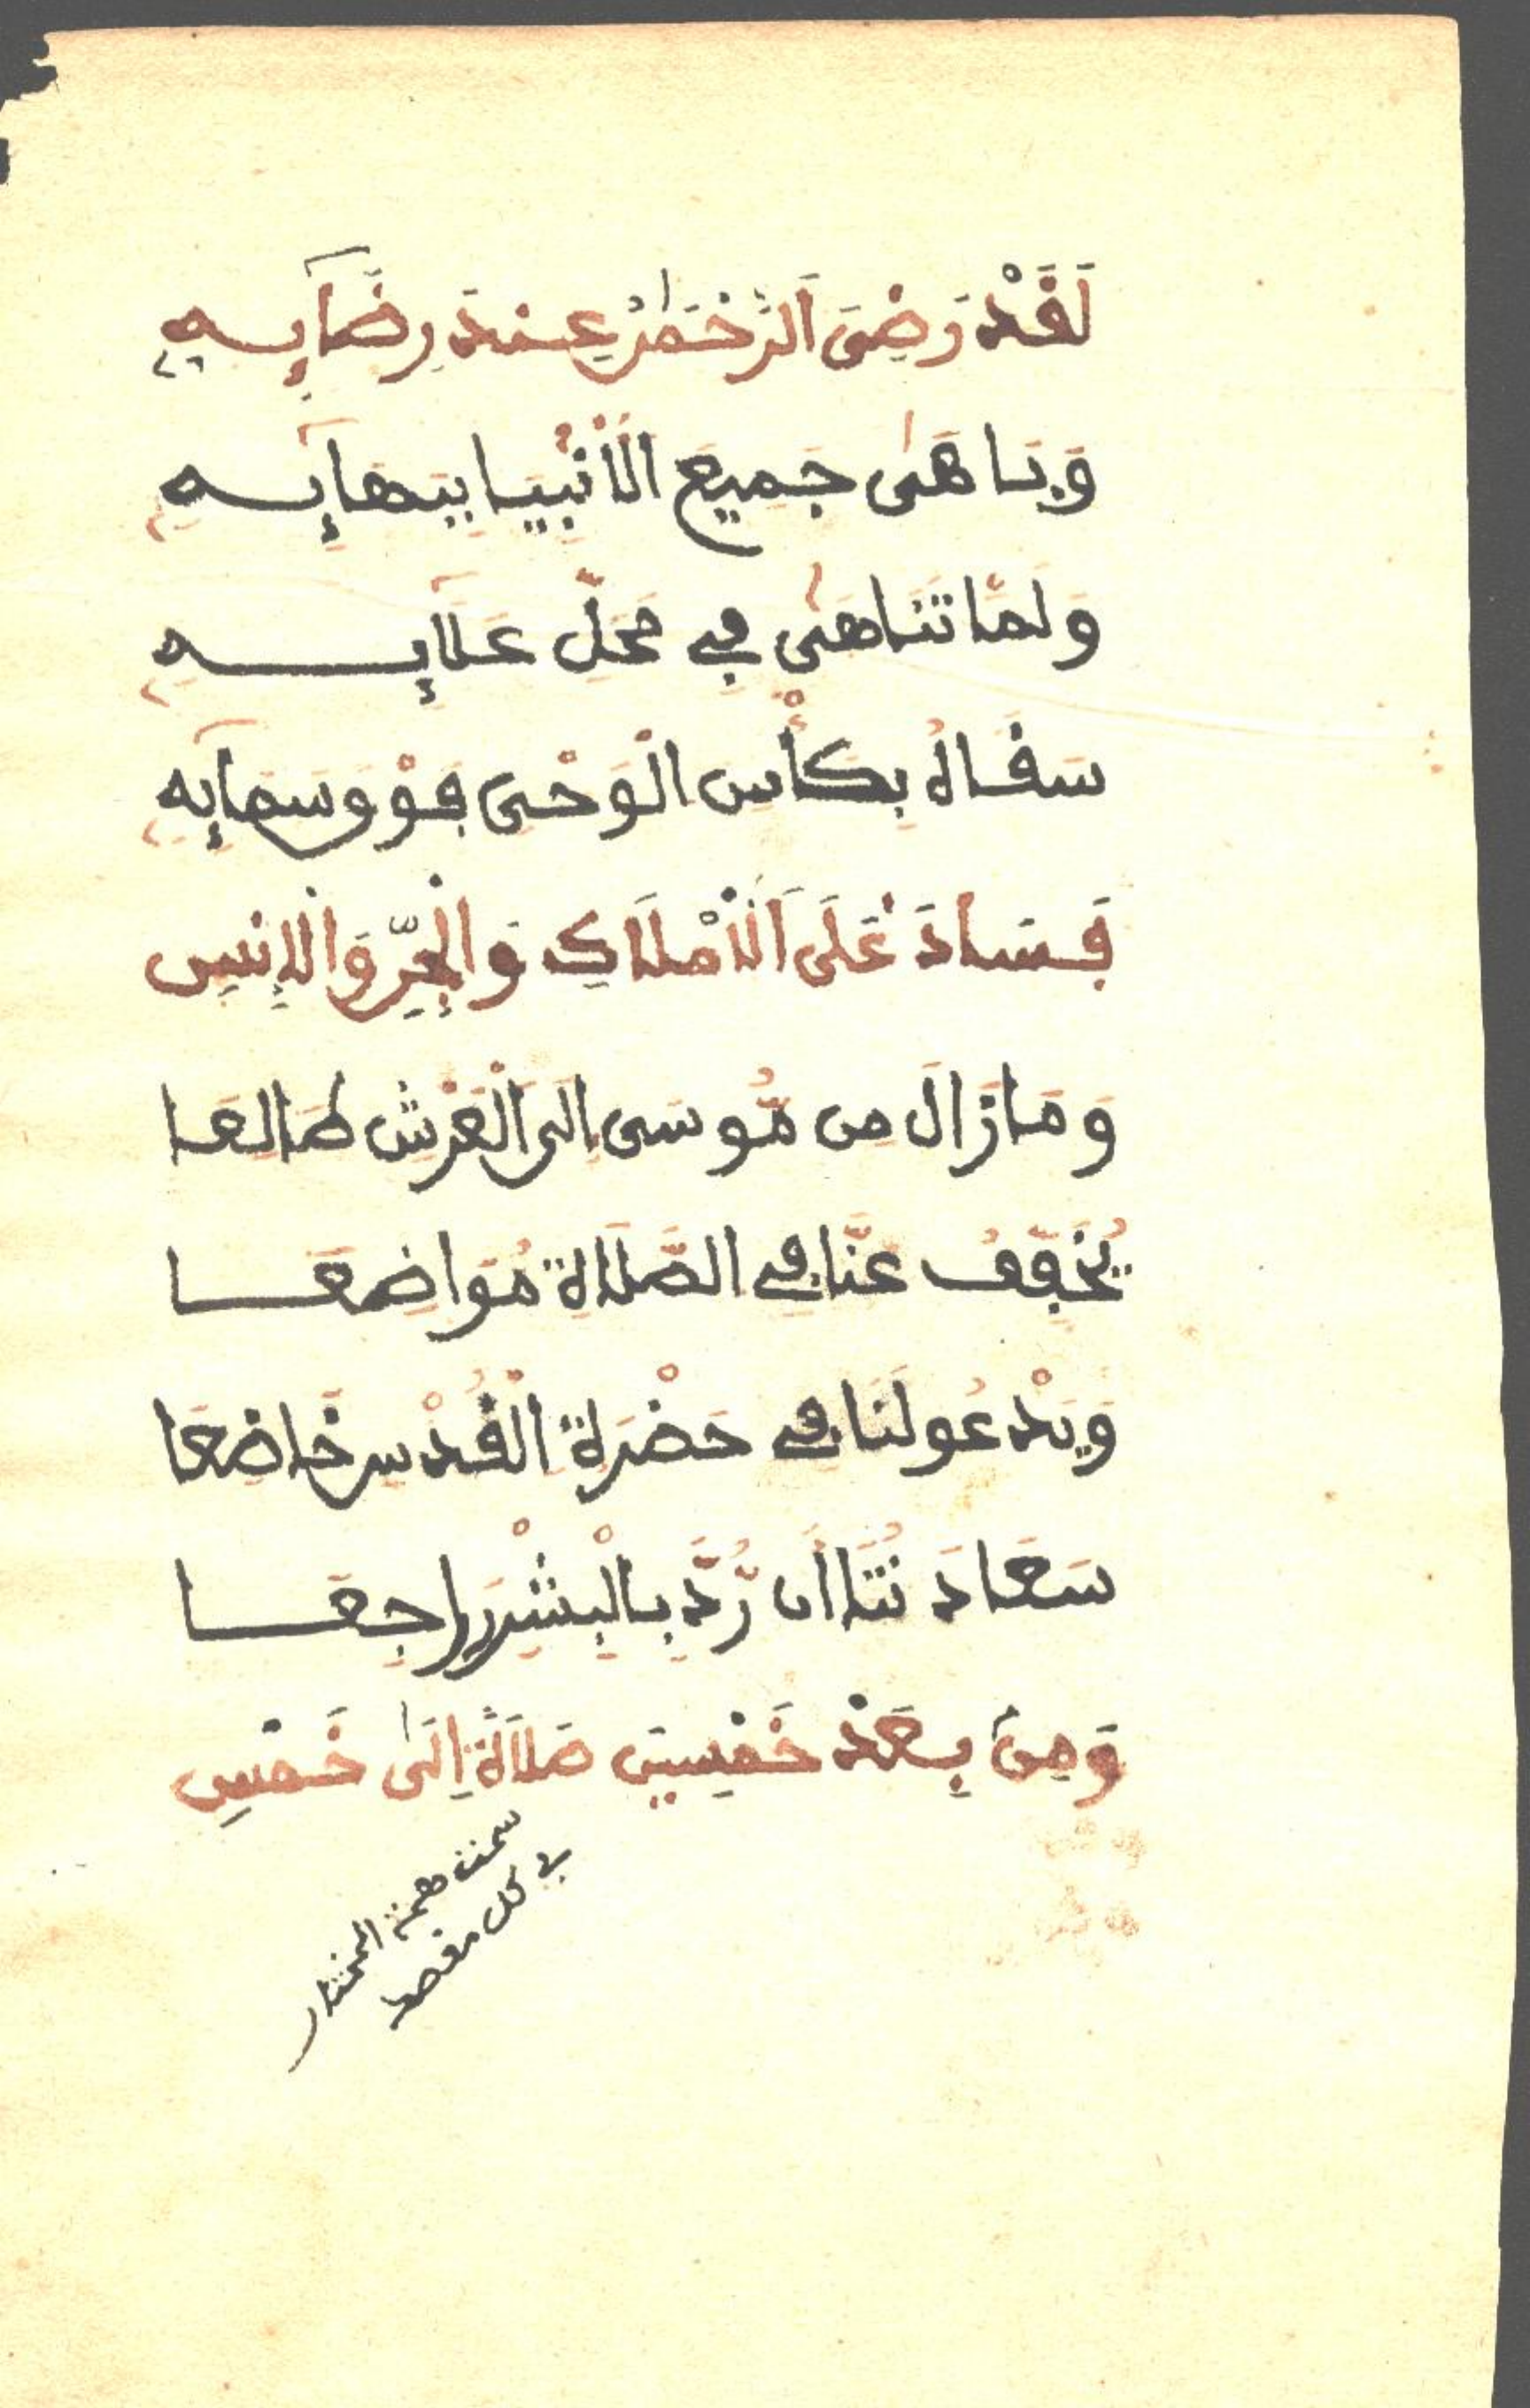 لَقَدْ رَضِىَ الرَّحْمَٰنُ عِندَ رِضَآيِٕهِ
وَبَاهَىٰ جَمِيعَ الْأَنْبِيَا بِبَهَآيِٕهِ
وَلَمَّا تَنَاهَىٰ فِى مَحَلِّ عَلَآيِٕهِ
سَقَاهُ بِكَأْسِ الْوَحْىِ فَوْقَ سَمَآيِٕهِ
فَسَادَ عَلَى الْأَمْلَاكِ وَالْجِنِّ وَالْإِنسِ
وَمَا زَالَ مِن مُّوسَى إِلَى الْعَرْشِ طَالِعَا
يُخَفِّفُ عَنَّا فِى الصَّلَاةِ مَوَاضِعَا
وَيَدْعُو لَنَا فِى حَضْرَةِ الْقُدْسِ خَاضِعَا
سَعَادَتُنَا أَن رُّدَّ بِالْبِشْرِ رَاجِعَا
وَمِنْ بَعْدِ خَمْسِينَ صَلَاةً إِلَىٰ خَمْسِ
سمت همة المختار
فى كل مقصد